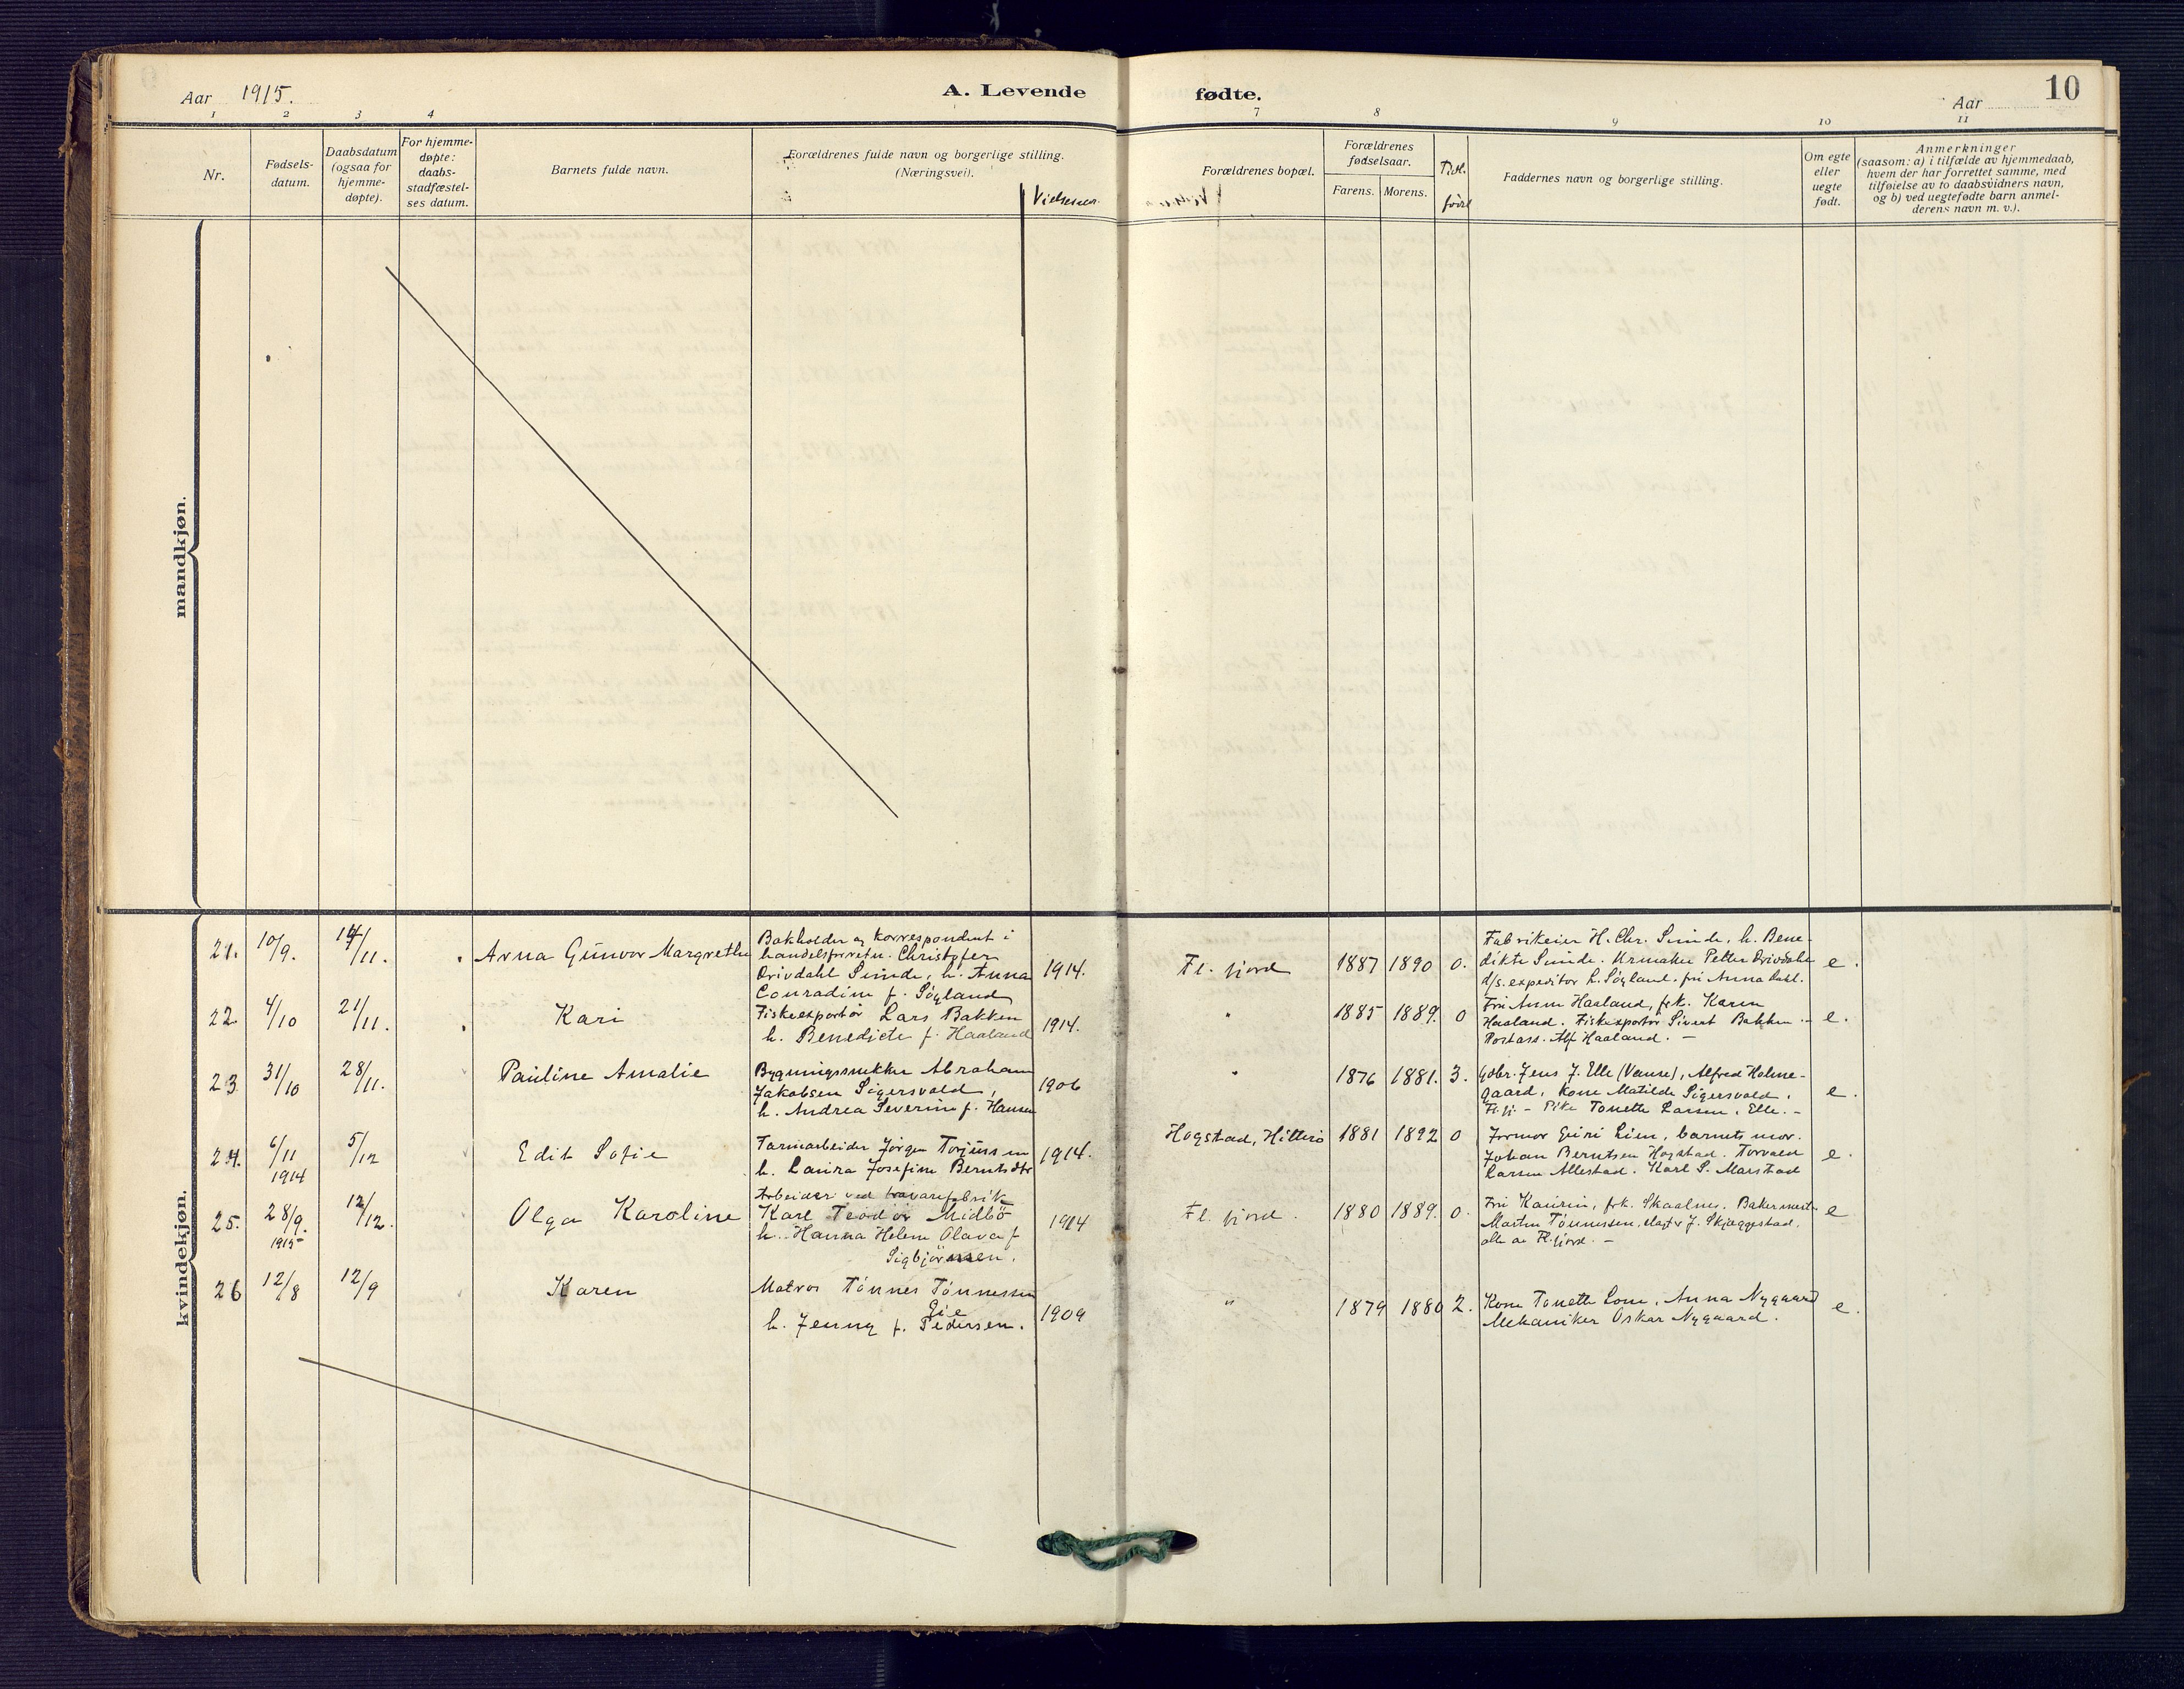 Aar 1915.
A. Levende
fødte.
10
Aar
1 2 3 4 7 8 9 10 11
Nr.
Fødsels-
datum.
Daabsdatum
(ogsaa for
hjemme-
døpte).
For hjemme-
døpte:
daabs-
stadfæstel-
ses datum.
Barnets fulde navn.
Forældrenes fulde navn og borgerlige stilling.
(Næringsvei).
Vielsesaar.
Forældrenes bopæl.
Forældrenes
fødselsaar.
Farens. Morens.
Tidl.
født
Faddernes navn og borgerlige stilling.
Om egte
eller
uegte
født.
Anmerkninger
(saasom: a) i tilfælde av hjemmedaab,
hvem der har forrettet samme, med
tilføielse av to daabsvidners navn,
og b) ved uegtefødte barn anmel-
derens navn m. v.).
mandkjøn.
kvindekjøn.
21. 10/9. 14/11. Arna Gunvor Margrethe
Bokholder og korrespondent i
handelsforretn. Christofer
Drivdahl Sunde, h. Anna
Conradine f. Søyland
1914. Fl. fjord 1887 1890 0.
Fabrikeier H. Chr. Sunde, h. Bene-
dikte Sunde. Urmaker Petter Drivdahl
d/s. expeditør L. Søyland. fru Anna Dahl.
e.
22. 4/10 21/11. Kari
Fiskeexportør Lars Bakken
h. Benedicte f. Haaland
1914. " 1885 1889. 0
Fru Anna Haaland, frk. Karen
Haaland. Fiskexportør Sivert Bakken. -
Postass. Alf Haaland. -
e.
23 31/10 28/11. Pauline Amalie
Bygningssnekker Abraham
Jakobsen Sigersvold,
h. Andrea Severine f. Hansen
1906 " 1876 1881. 3.
Gdbr. Jens J. Elle (Vanse), Alfred Holme-
gaard, Kone Matilde Sigersvold,
Fl.fj. - Pike Tonette Larsen, Elle. -
e.
24. 6/11 1914 5/12 Edit Sofie
Farmarbeider Jørgen Torjussen
h. Laura Josefine Berntsdtr
1914. Hogstad, Hitterø 1881 1892 0
Formor Guri Lien, barnets mor.
Johan Berntsen Hogstad. Torvald
Larsen Allestad. Karl S. Marstad
e.
25. 28/9. 1915 12/12. Olga Karoline
Arbeider ved trævarefabrik
Karl Teodor Midbö
h. Hanna Helene Olava f
Sigbjørnsen.
1914 Fl. fjord. 1880 1889. 0.
Fru Kaurin, frk. Skaalnes. Bakermest.
Martin Tønnessen, slagter J. Skjeggestad.
alle av Fl.fjord. -
e
26 12/8 12/9 Karen
Matros Tønnes Tønnessen
Gie
h. Jenny f. Pedersen.
1909 " 1879 1880 2.
Kone Tonette Lone, Anna Nygaard
Mekaniker Oskar Nygaard.
e.